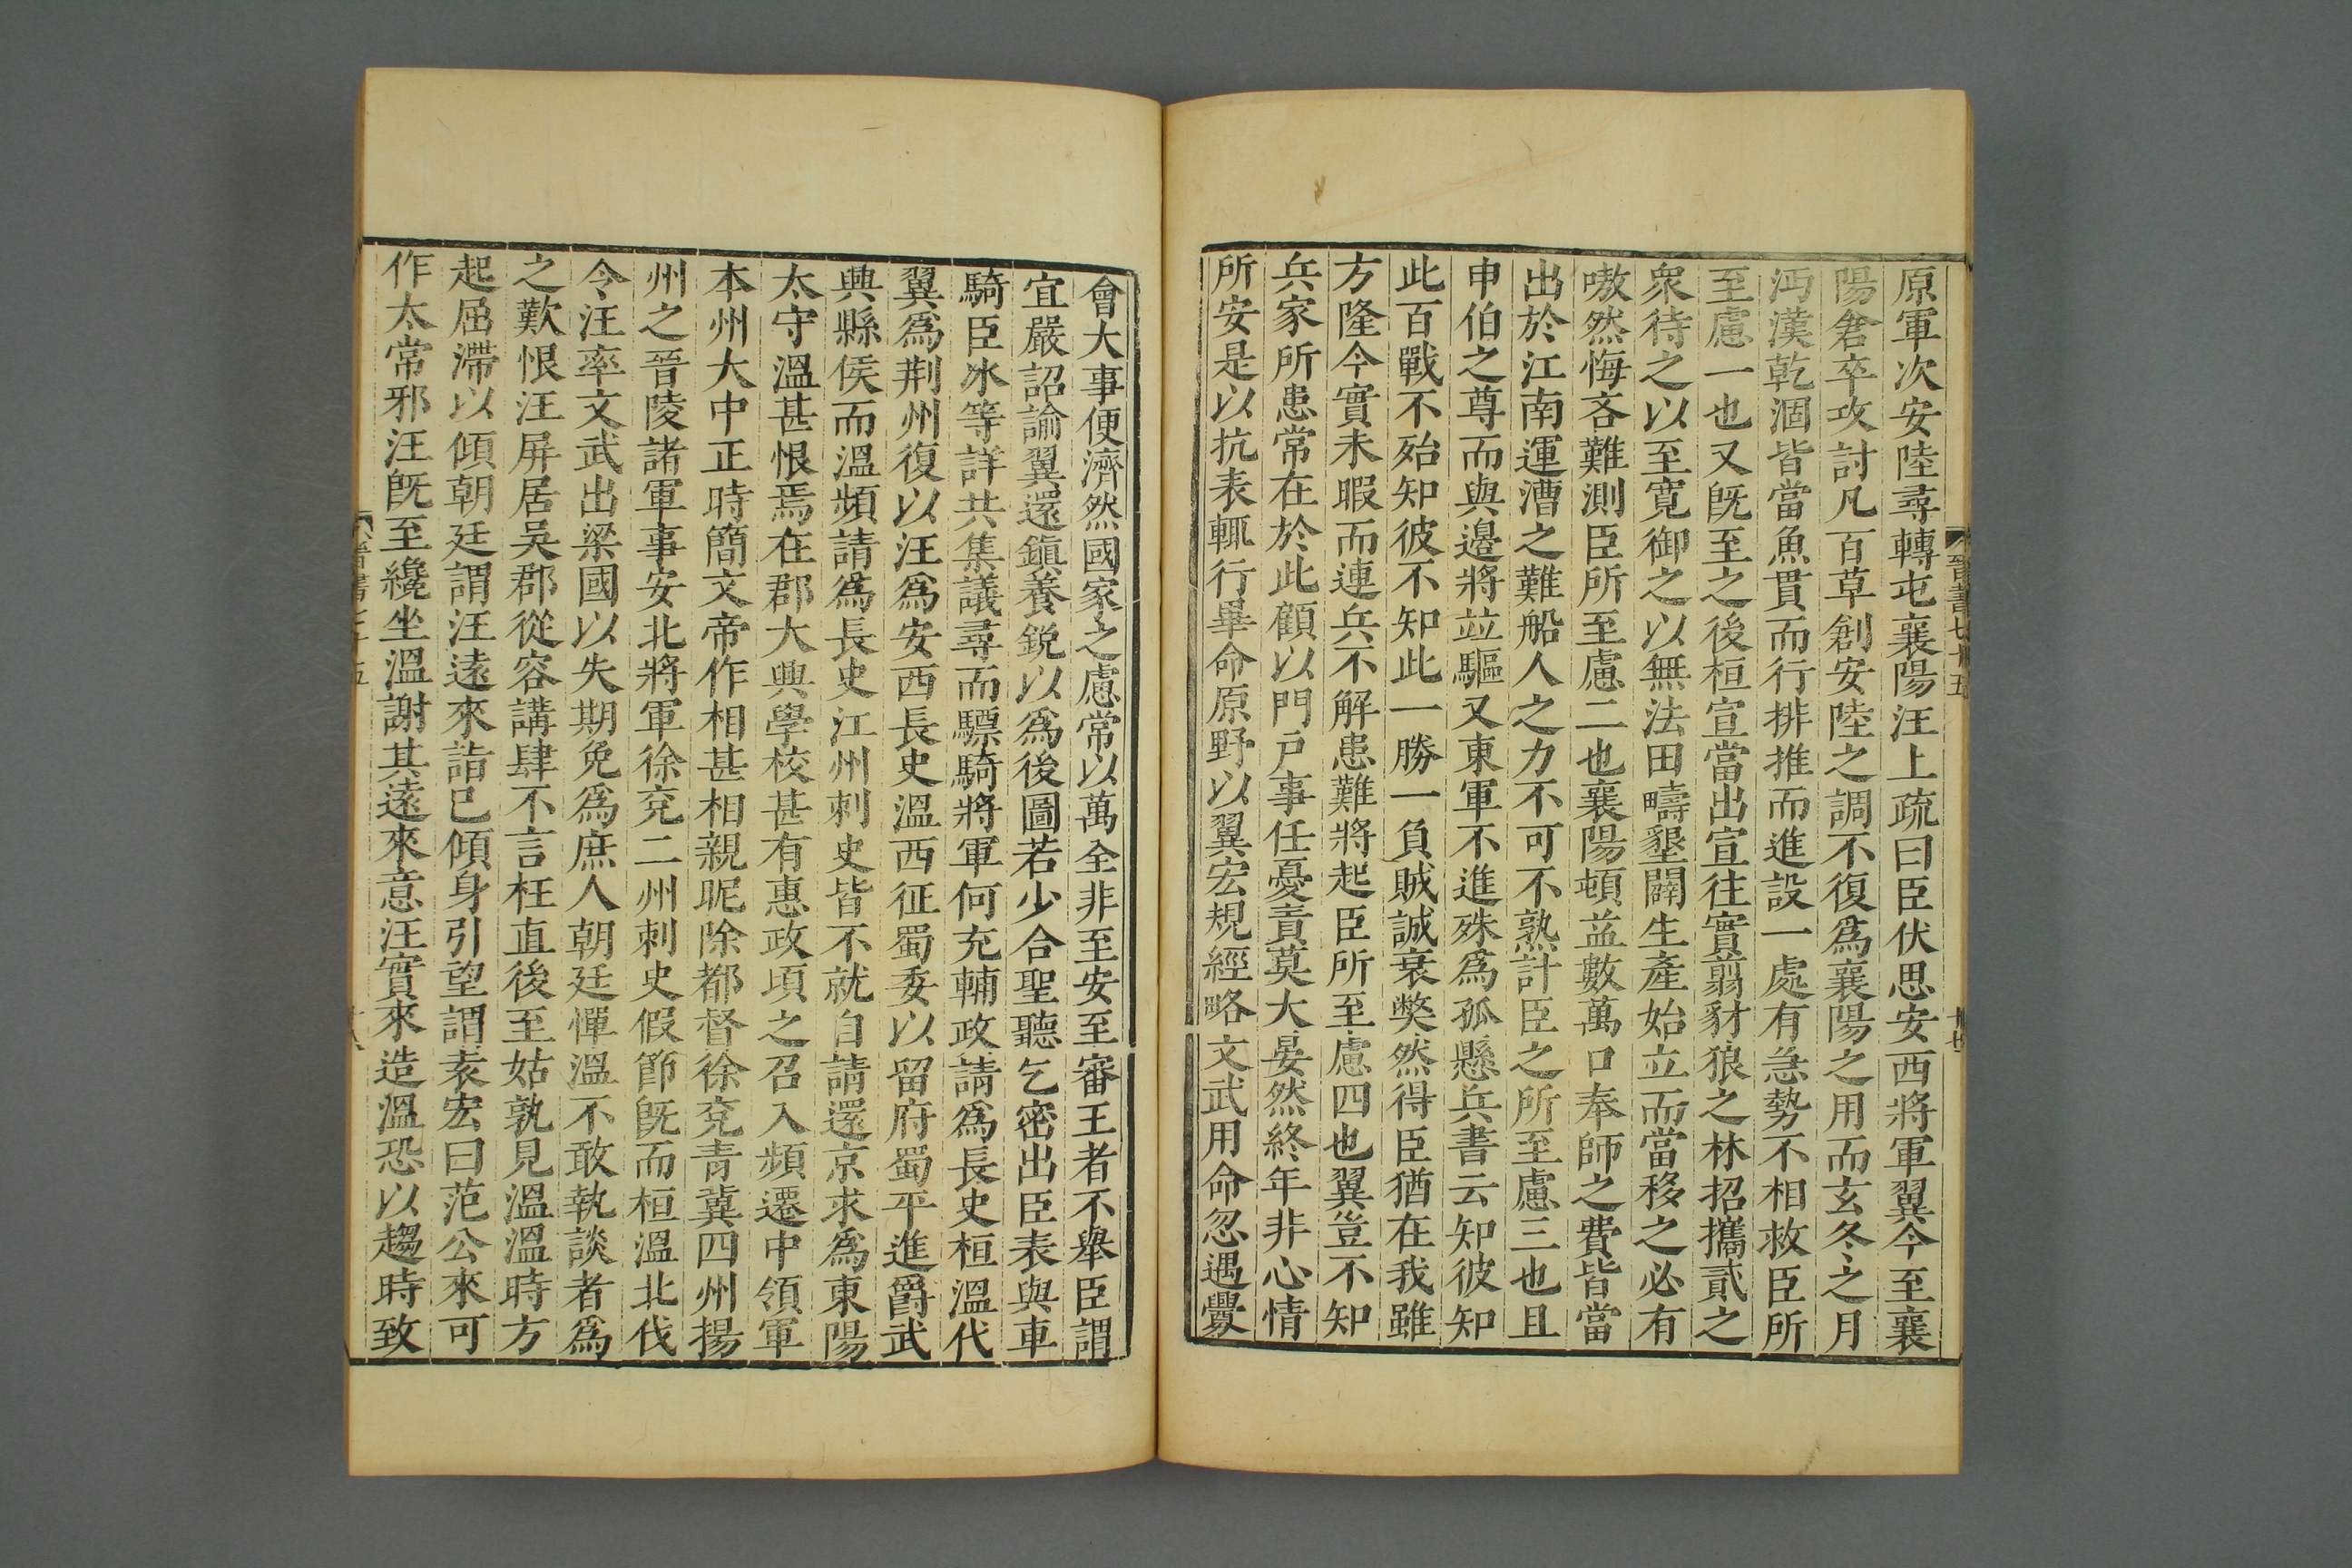 原軍次安陸尋轉屯襄陽汪上疏曰臣伏思安西將軍翼今至襄
陽倉卒攻討凡百草創安陸之調不復爲襄陽之用而玄冬之月
沔漢乾涸皆當魚貫而行排推而進設一處有急勢不相救臣所
至慮一也又旣至之後桓宣當出宣往實翦豺狼之林招攜貳之
衆待之以至寬御之以無法田疇墾闢生產始立而當移之必有
嗷然悔吝難測臣所至慮二也襄陽頓益數萬口奉師之費皆當
出於江南運漕之難船人之力不可不熟計臣之所至慮三也且
申伯之尊而與邊將竝驅又東軍不進殊爲孤懸兵書云知彼知
此百戰不殆知彼不知此一勝一負賊誠衰獘然得臣猶在我雖
方隆今實未暇而連兵不解患難將起臣所至慮四也翼豈不知
兵家所患常在於此顧以門戶事任憂責莫大晏然終年非心情
所安是以抗表輒行畢命原野以翼宏規經略文武用命忽遇釁
會大事便濟然國家之慮常以萬全非至安至審王者不舉臣謂
宜嚴詔諭翼還鎭養銳以爲後圖若少合聖聽乞密出臣表與車
騎臣冰等詳共集議尋而驃騎將軍何充輔政請爲長史桓溫代
翼爲荆州復以汪爲安西長史溫西征蜀委以留府蜀平進爵武
興縣侯而溫頻請爲長史江州刺史皆不就自請還京求爲東陽
太守溫甚恨焉在郡大興學校甚有惠政頃之召入頻遷中領軍
本州大中正時簡文帝作相甚相親昵除都督徐兗青冀四州揚
州之晉陵諸軍事安北將軍徐兗二州刺史假節旣而桓溫北伐
令汪率文武出梁國以失期免爲庶人朝廷憚溫不敢執談者爲
之歎恨汪屏居吳郡從容講肆不言枉直後至姑孰見溫溫時方
起屈滯以傾朝廷謂汪遠來詣已傾身引望謂袁宏曰范公來可
作太常邪汪旣至纔坐溫謝其遠來意汪實來造溫恐以趨時致
晉書七十五